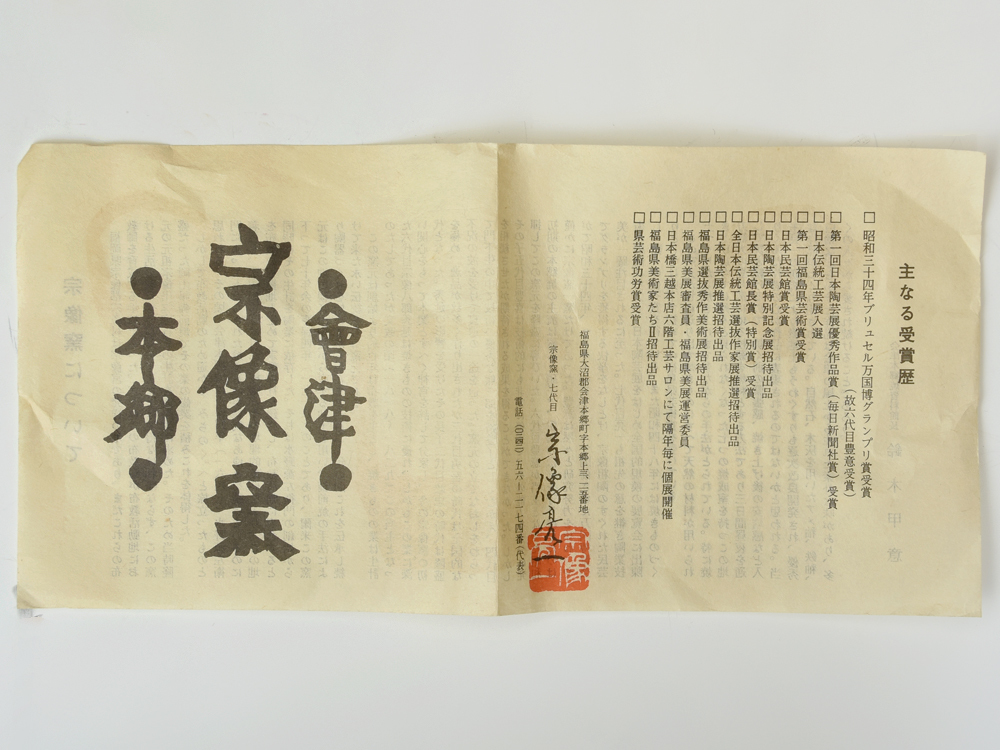 主なる受賞歴
□ 昭和三十四年ブリュセル万国博グランプリ賞受賞
(故六代目豊意受賞)
□ 第一回日本陶芸展優秀作品賞(毎日新聞社賞)受賞
□ 日本伝統工芸展入選
□ 第一回福島県芸術賞受賞
□ 日本民芸館賞受賞
□ 日本陶芸展特別記念展招待出品
□ 日本民芸館長賞(特別賞)受賞
□ 全日本伝統工芸選抜作家展推選招待出品
□ 日本陶芸展推選招待出品
□ 福島県選抜秀作美術展招待出品
□ 福島県美展審査員・福島県美展運営委員
□ 日本橋三越本店六階工芸サロンにて隔年毎に個展開催
□ 福島県美術家たちⅡ招待出品
□ 県芸術功労賞受賞
福島県大沼郡会津本郷町字本郷上三一一五番地
宗像窯・七代目 宗像亮一
宗像亮一
電話(〇二四二)五六ー二一七四番(代表)
會津
宗像窯
本郷